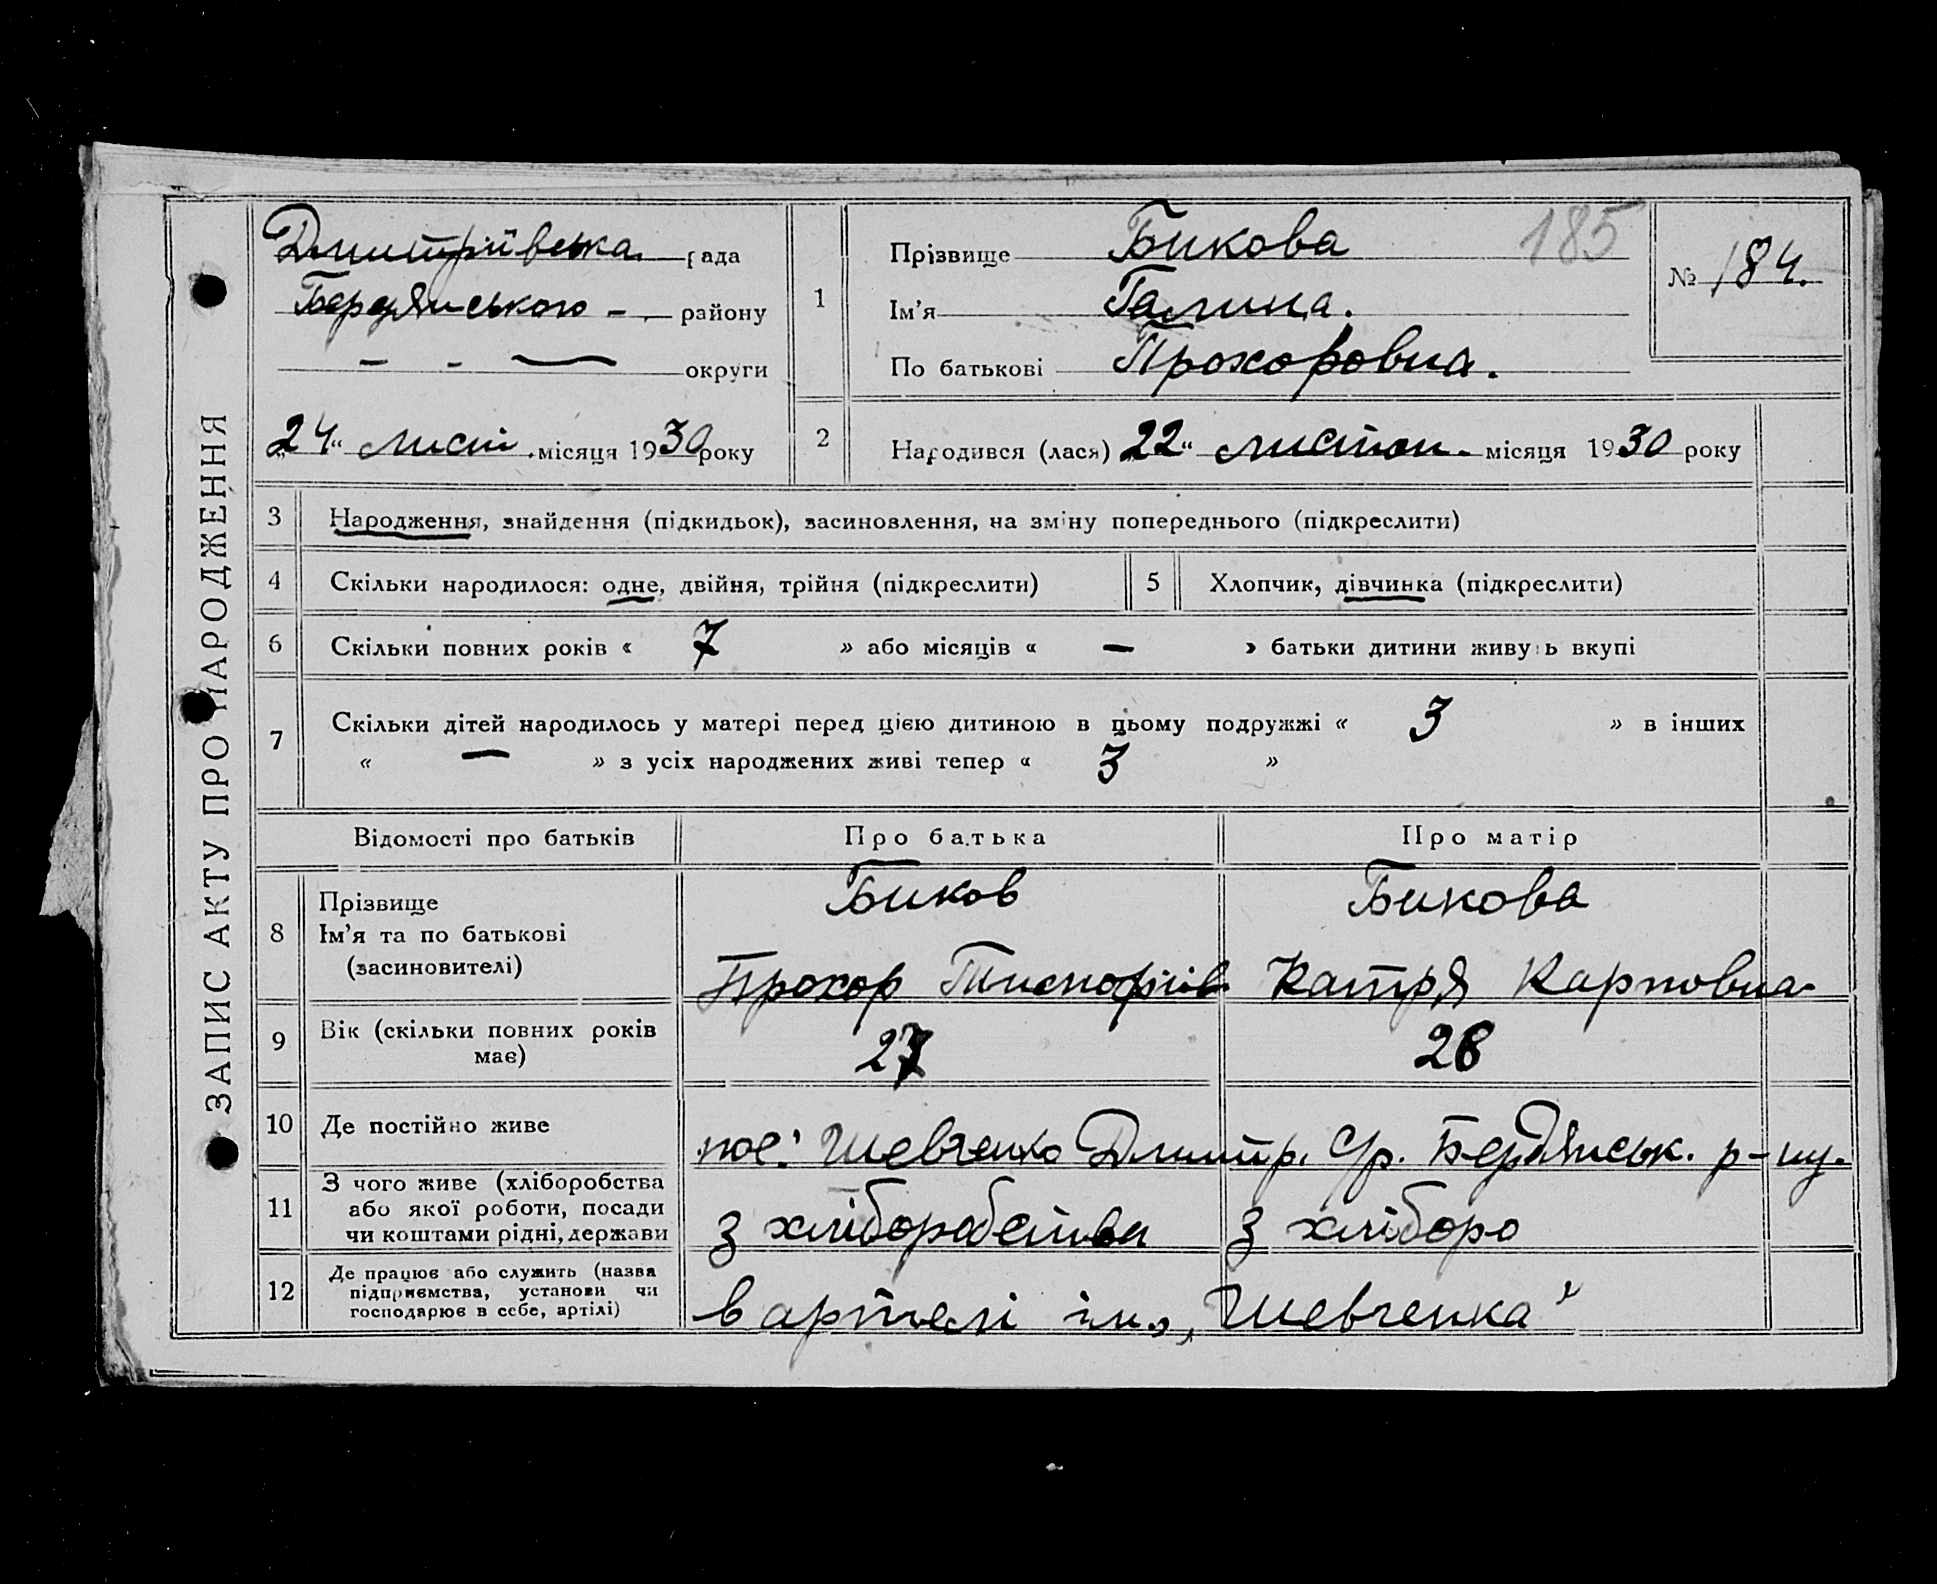 ЗАПИС АКТУ ПРО НАРОДЖЕННЯ
Дмитріївська рада
Бердянського - район у
— - — округи
„24“ лист. місяця 1930 року
1
Прізвище Бикова
Ім’я Галина.
По батькові Прохоровна.
185
№ 184.
2
Народився (лася) „22“ листоп. місяця 1930 року
3 Народження, знайдення (підкидьок), засиновлення, на зміну попереднього (підкреслити)
4 Скільки народилося: одне, двійня, трійня (підкреслити) 5 Хлопчик, дівчинка (підкреслити)
6 Скільки повних років « 7 » або місяців « — » батьки дитини живуть вкупі
7 Скільки дітей народилось у матері перед цією дитиною в цьому подружжі « 3 » в інших
« — » з усіх народжених живі тепер « 3 »
Відомості про батьків Про батька Про матір
8 Прізвище Биков Бикова
Ім’я та по батькові
(засиновителі) Прохор Катря Карповна
9 Вік (скільки повних років має) 27 28
10 Де постійно живе пос. Шевченко Дмитр. с/р. Бердянськ. р-ну.
11 З чого живе (хліборобства
або якої роботи, посади
чи коштами рідні, держави з хліборобства з хліборо
12 Де працює або служить (назва
підприємства, установи чи
господарює в себе, артілі) в артелі ім. „Шевченка”